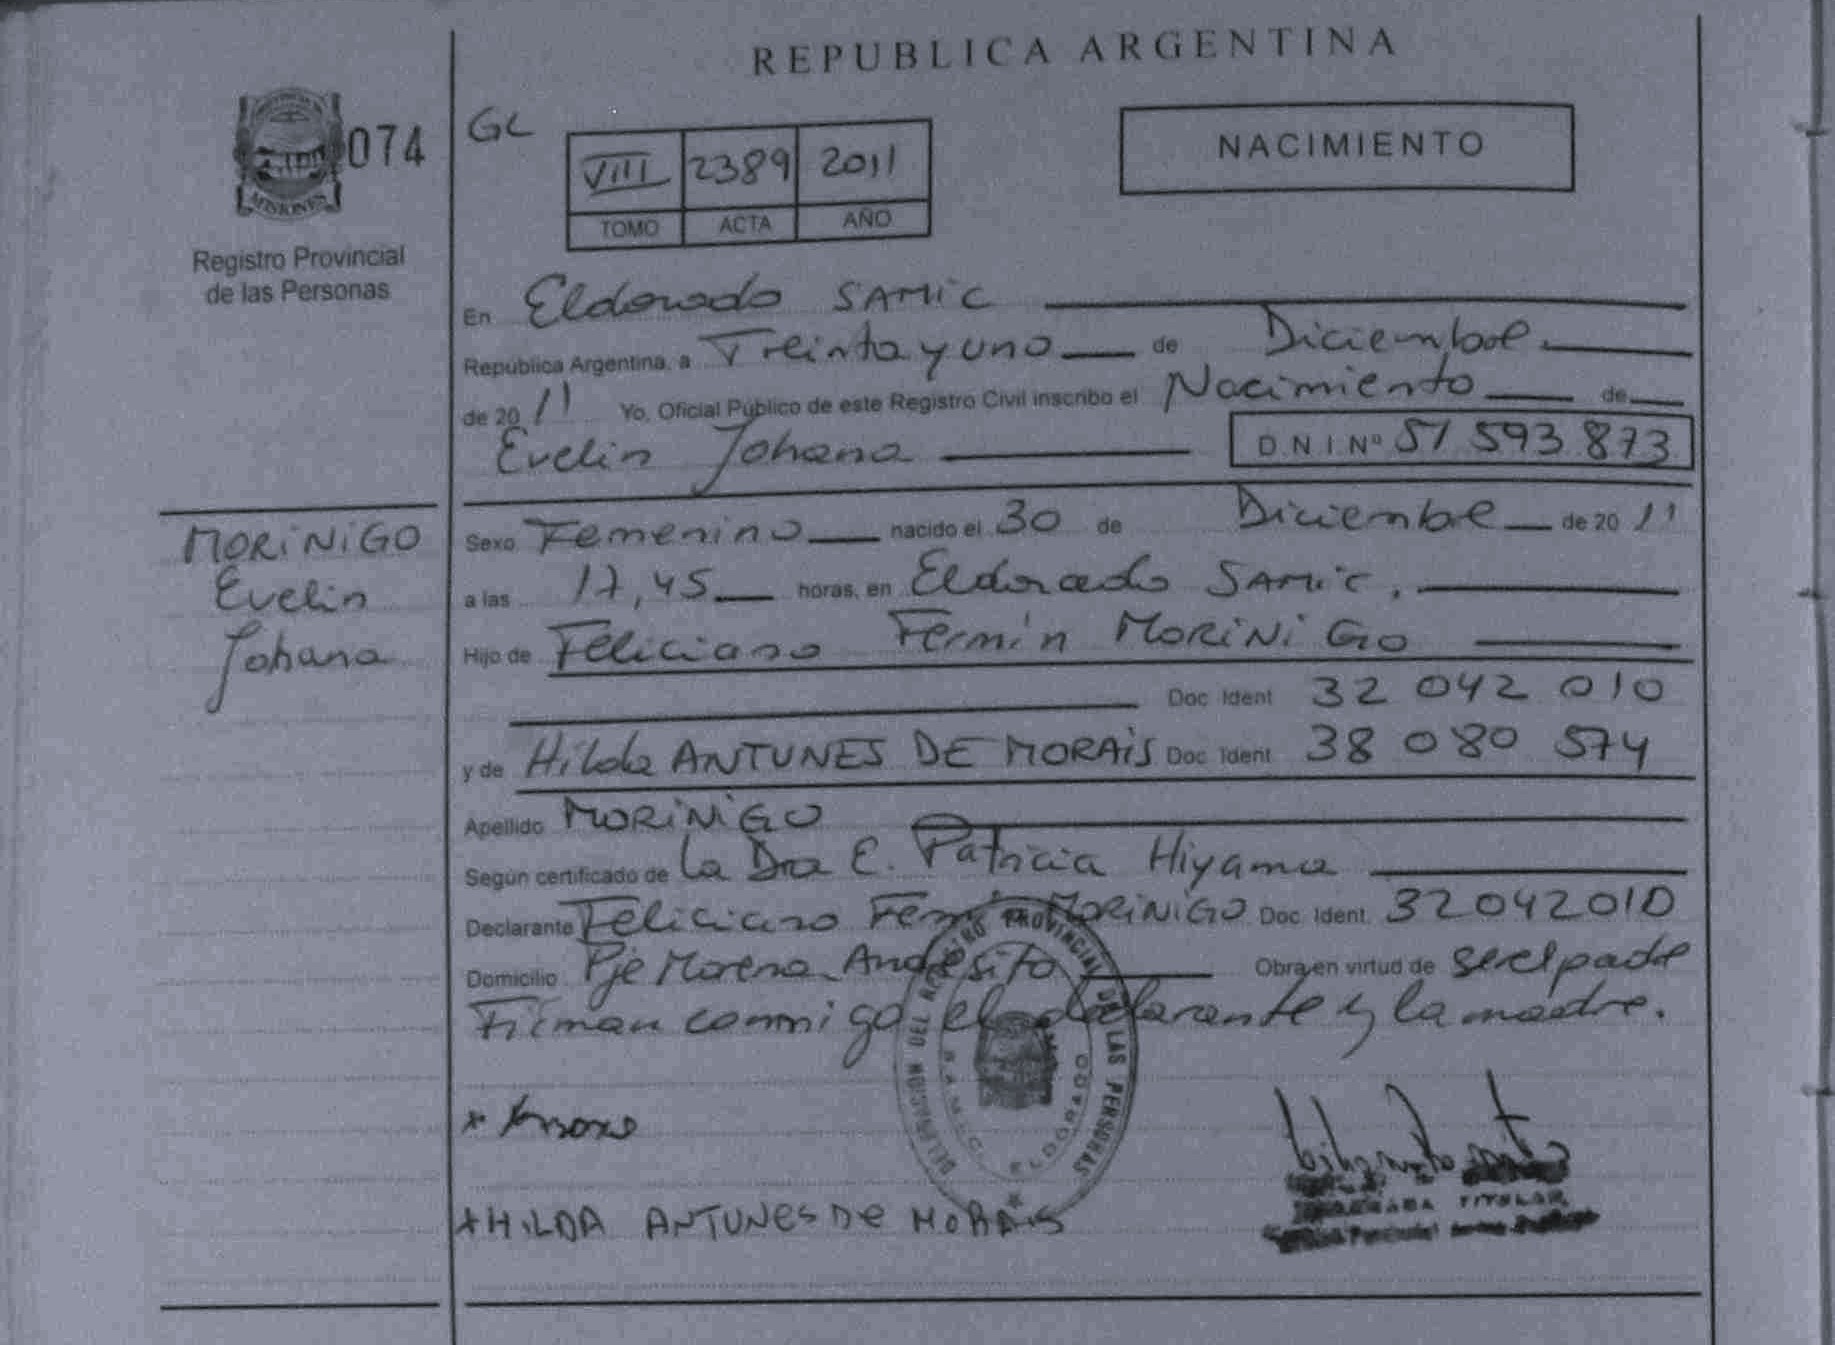 REPUBLICA ARGENTINA
PROVINCIA DE
MISIONES
074
GL
NACIMIENTO
VIII 2389 2011
TOMO ACTA AÑO
Registro Provincial
de las Personas
En Eldorado SAMIC
República Argentina, a Treinta y uno de Diciembre
de 20 11 Yo, Oficial Público de este Registro Civil inscribo el Nacimiento de
Evelin Johana D N I Nº 51 593 873
MORINIGO
Evelin
Johana
Sexo Femenino nacido el 30 de Diciembre de 20 11
a las 17,45 horas, en Eldorado SAMIC.
Hijo de Feliciano Fermín MORINIGO
Doc Ident 32 042 010
y de Hilda ANTUNES DE MORAIS Doc Ident 38 080 574
Apellido MORINIGO
Según certificado de la Dra E. Patricia Hiyama
Declarante Feliciano Fermín MORINIGO Doc Ident 32042010
Domicilio Pje Moreno Andresito Obra en virtud de ser el padre
Firman conmigo el declarante y la madre.
DELEGACION DEL REGISTRO PROVINCIAL DE LAS PERSONAS
S.A.M.I.C. ELDORADO
HILDA ANTUNES DE MORAIS
TITULAR